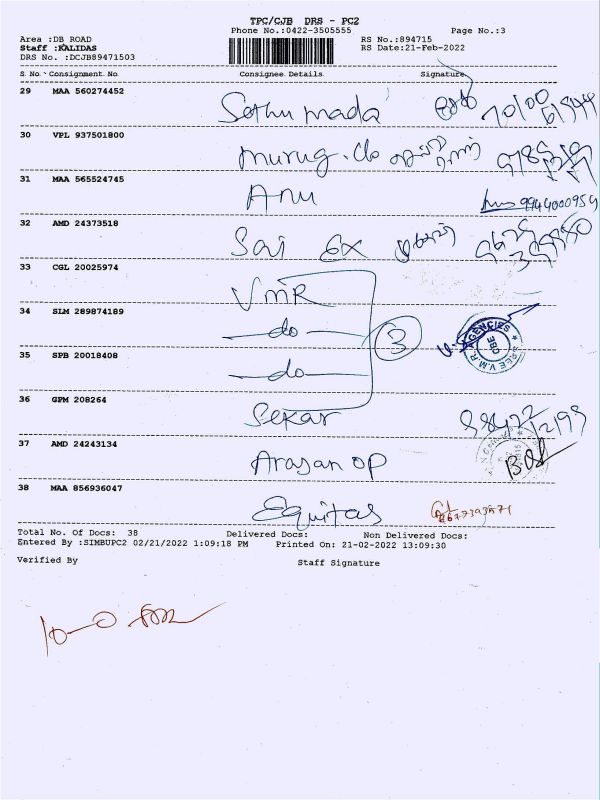 TPC/CJB DRS - PC2
Phone No.:0422-3505555
Page No.:3
Area :DB ROAD
RS No.:894715
Staff :KALIDAS
RS Date:21-Feb-2022
DRS No. :DCJB89471503
S No Consignment No Consignee Details Signature
29 MAA 560274452 Sethu mada
30 VPL 937501800 murug
31 MAA 565524745 Anu 9944000954
32 AMD 24373518 Sai Ex
33 CGL 20025974 VMR
34 SLM 289874189 do 3
AGENCIES CBE SREE V.M.R.
35 SPB 20018408 do
36 GPM 208264 Sekar
37 AMD 24243134 Arasan OP
38 MAA 856936047 Equitas
Total No. Of Docs: 38 Delivered Docs: Non Delivered Docs:
Entered By :SIMBUPC2 02/21/2022 1:09:18 PM Printed On: 21-02-2022 13:09:30
Verified By Staff Signature